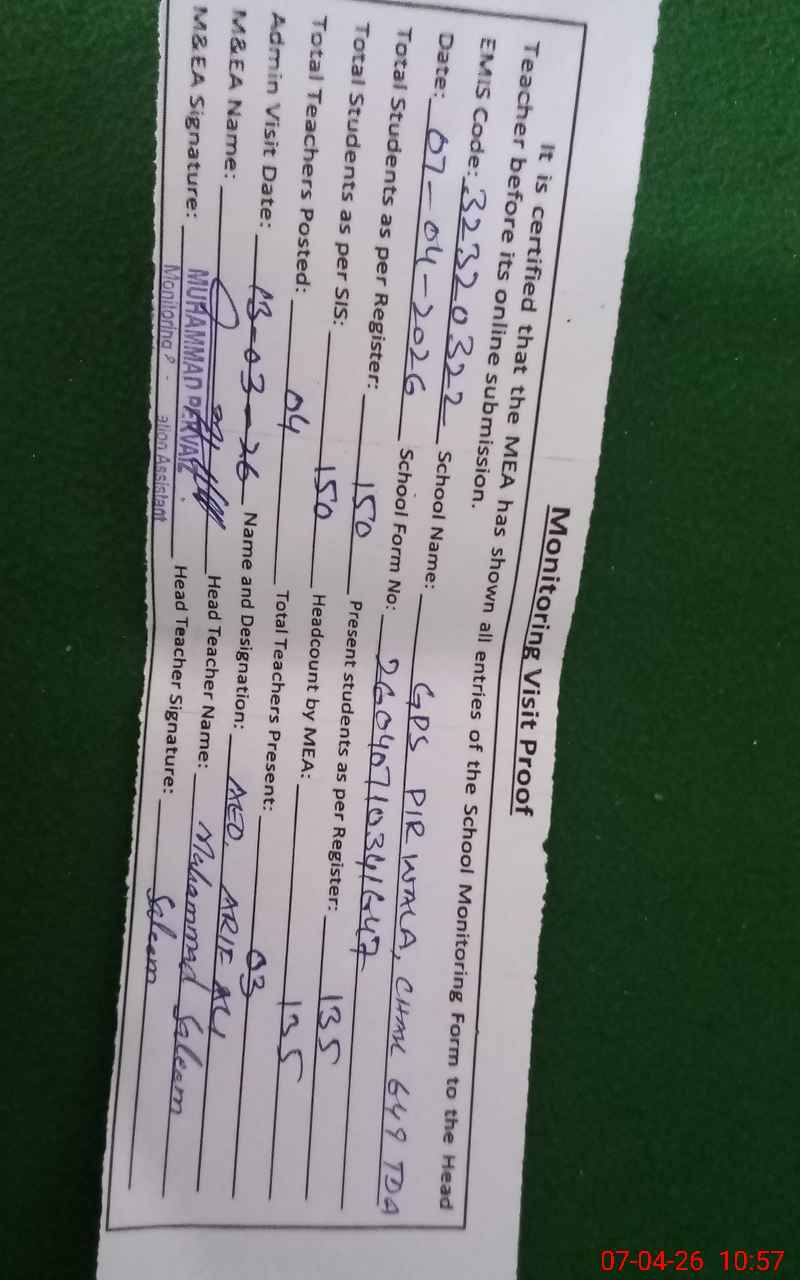 Monitoring Visit Proof
It is certified that the MEA has shown all entries of the School Monitoring Form to the Head
Teacher before its online submission.
EMIS Code: 32320322 School Name: GPS PIR WALA, CHAK 649 TDA
Date: 07-04-2026 School Form No: 26040710341647
Total Students as per Register: 150 Present students as per Register: 135
Total Students as per SIS: 150 Headcount by MEA: 135
Total Teachers Posted: 04 Total Teachers Present: 03
Admin Visit Date: 13-03-26 Name and Designation: AEO. ARIF ALI
M&EA Name: Head Teacher Name: Muhammad Saleem
M&EA Signature: MUHAMMAD PERVAIZ Head Teacher Signature: Saleem
Monitoring & ation Assistant
07-04-26 10:57